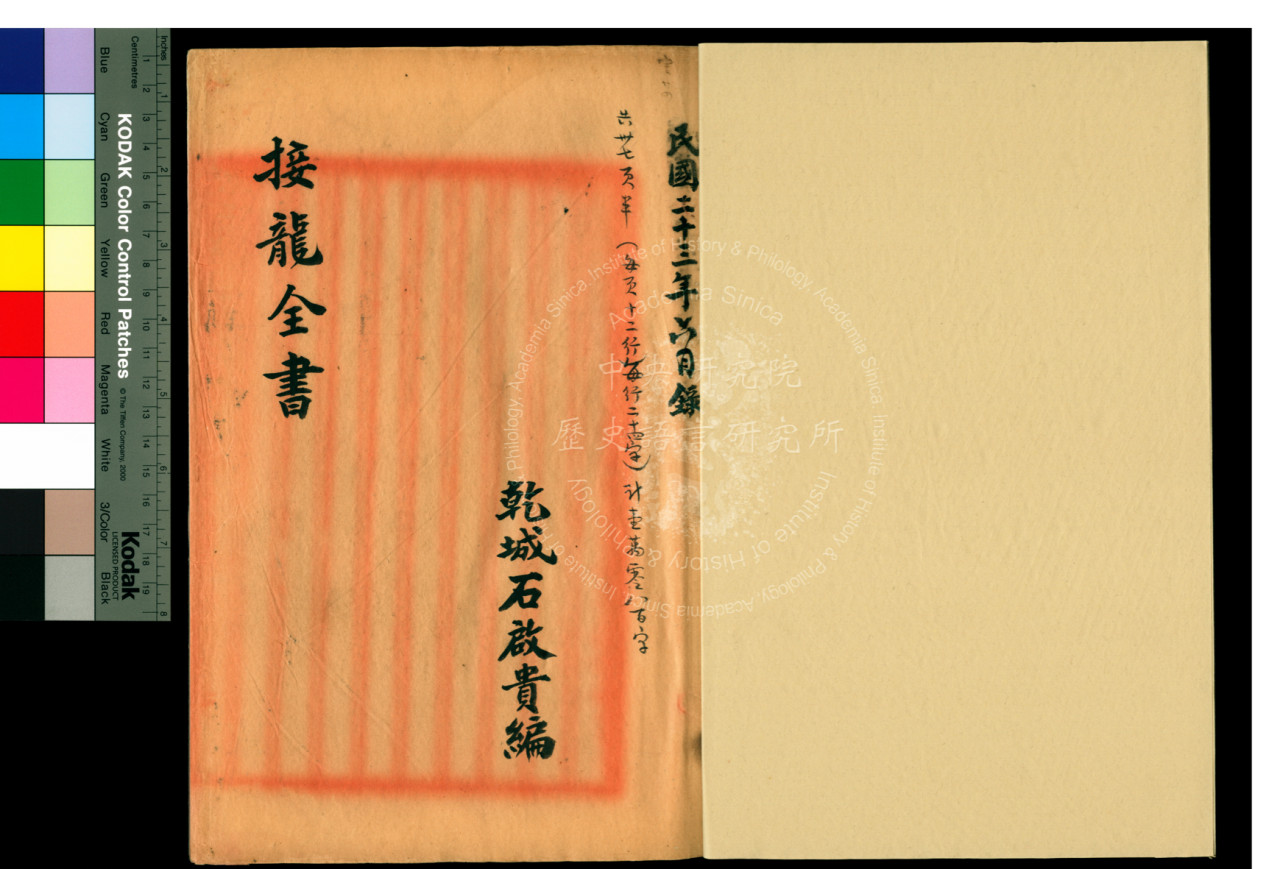 民國二十三年六月錄
共卅七頁半（每頁十二行每行二十四字）計壹萬零八百字
乾城石啟貴編
接龍全書
中央研究院
歷史語言研究所
Academia Sinica
Institute of History & Philology, Academia Sinica
KODAK Color Control Patches
© The Tiffen Company, 2000
Kodak
LICENSED PRODUCT
Inches
Centimetres
Blue
Cyan
Green
Yellow
Red
Magenta
White
3/Color
Black